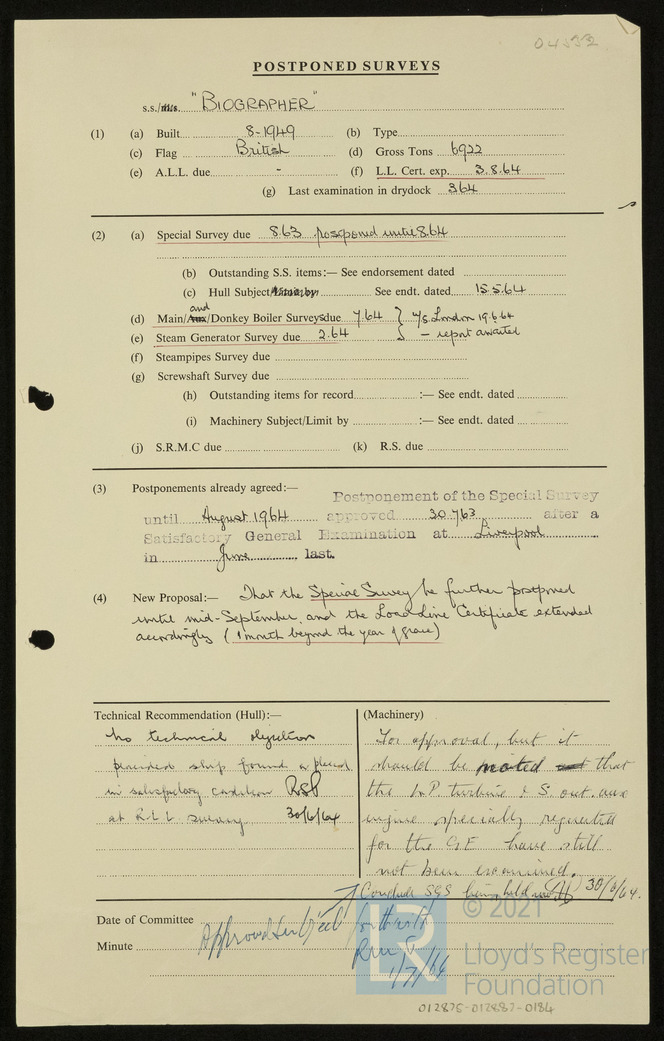 04532
POSTPONED SURVEYS
s.s./m.s. "BIOGRAPHER"
(1) (a) Built 8-1949 (b) Type
(c) Flag British (d) Gross Tons 6922
(e) A.L.L. due - (f) L.L. Cert. exp. 3.8.64
(g) Last examination in drydock 3.64
(2) (a) Special Survey due 8.63 postponed until 8.64
(b) Outstanding S.S. items:— See endorsement dated
(c) Hull Subject/ See endt. dated 15.5.64
and
(d) Main/Aux/Donkey Boiler Surveys due 7.64 } London 19.6.64
(e) Steam Generator Survey due 2.64 } - report awaited
(f) Steampipes Survey due
(g) Screwshaft Survey due
(h) Outstanding items for record :— See endt. dated
(i) Machinery Subject/Limit by :— See endt. dated
(j) S.R.M.C due (k) R.S. due
(3) Postponements already agreed:— Postponement of the Special Survey
until August 1964 approved 30.7.63 after a
Satisfactory General Examination at Liverpool
in June last.
(4) New Proposal:— That the Special Survey be further postponed
until mid-September, and the Load Line Certificate extended
accordingly (1 month beyond the year of grace)
Technical Recommendation (Hull):—
No technical objection
provided ship found & placed
in satisfactory condition RSP
at R.L.L. survey 30/6/64
(Machinery)
For approval, but it
should be noted that
the L.P. turbine & S. out. aux
engine specially requested
for the GE have still
not been examined.
Conclude SGS being held 30/6/64.
Date of Committee
Minute
Approved
1/7/64
© 2021
LR
Lloyd's Register
Foundation
012875-012882-0184